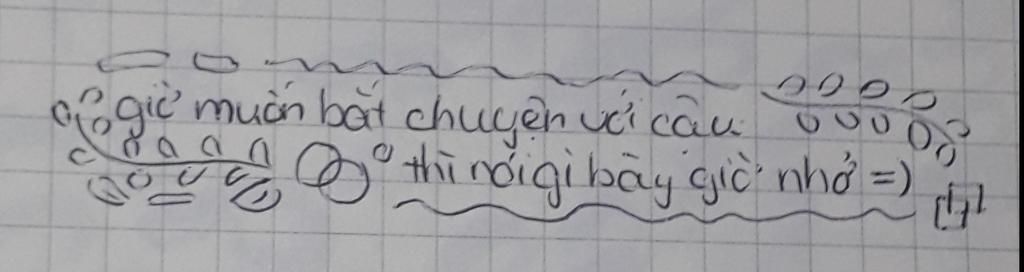 giờ muốn bắt chuyện với cậu
thì nói gì bây giờ nhở =)